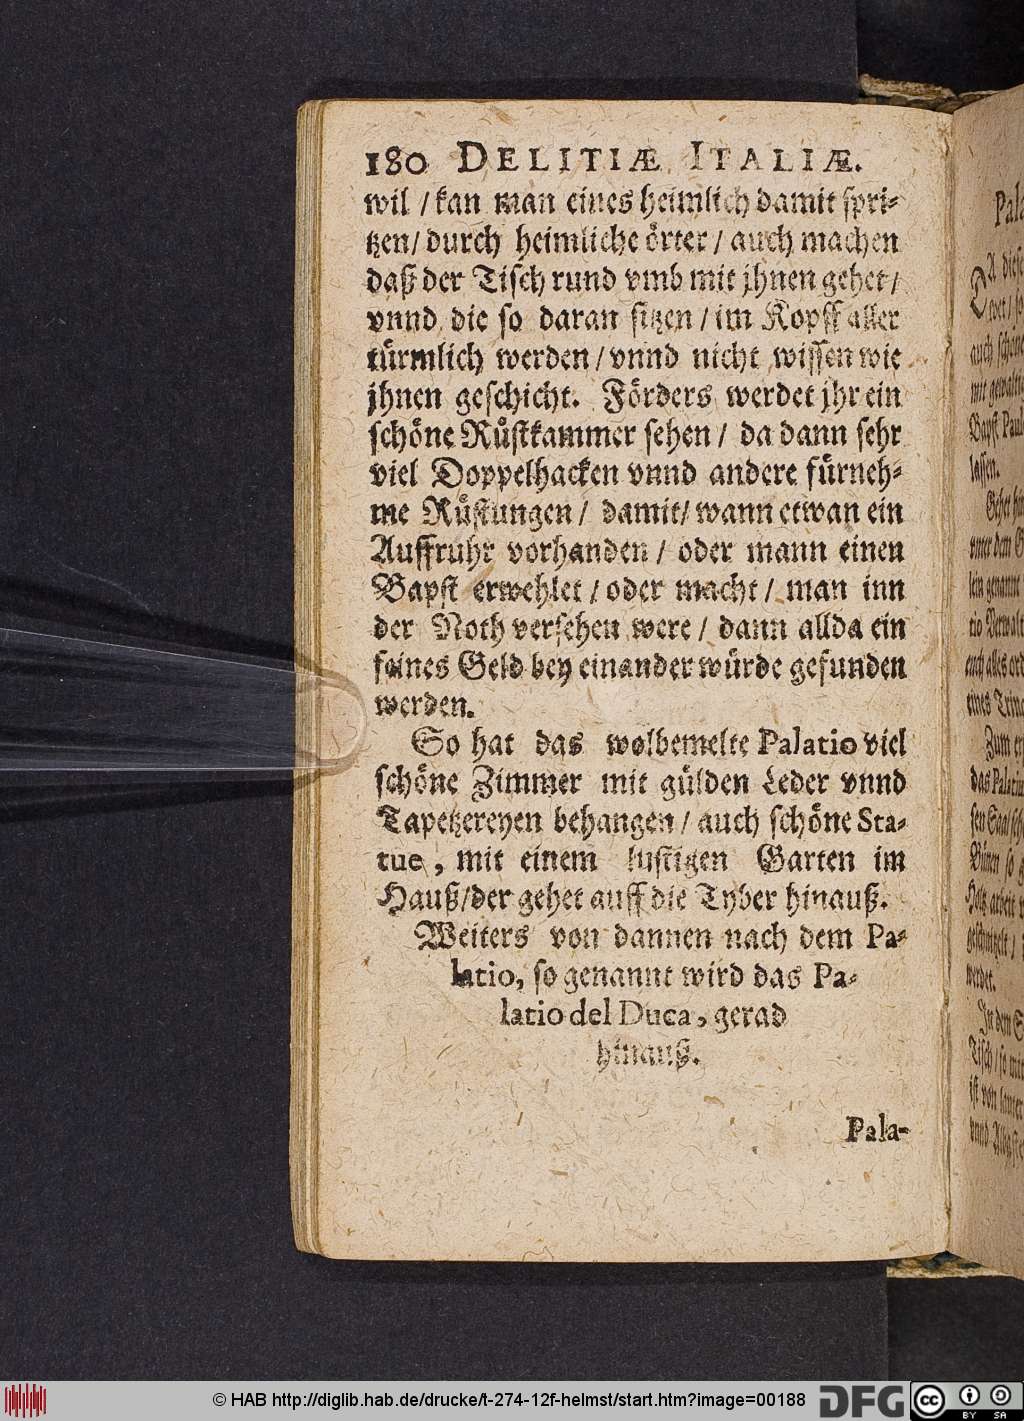 180 DELITIÆ ITALIÆ.
wil / kan man eines heimlich damit spri-
tzen/ durch heimliche örter / auch machen
daß der Tisch rund vmb mit jhnen gehet /
vnnd die so daran sitzen / im Kopff aller
türmlich werden / vnnd nicht wissen wie
jhnen geschicht. Förders werdet jhr ein
schöne Rüstkammer sehen / da dann sehr
viel Doppelhacken vnnd andere fürneh-
me Rüstungen / damit/ wann etwan ein
Auffruhr vorhanden / oder mann einen
Bapst erwehlet / oder macht / man inn
der Noth versehen were / dann allda ein
feines Geld bey einander würde gefunden
werden.
So hat das wolbemelte Palatio viel
schöne Zimmer mit gülden Leder vnnd
Tapetzereyen behangen / auch schöne Sta-
tue, mit einem lustigen Garten im
Hauß/der gehet auff die Tyber hinauß.
Weiters von dannen nach dem Pa-
latio, so genannt wird das Pa-
latio del Duca, gerad
hinauß.
Pala-
Pala
auch schöne
mit gewalti
Bapst Paul
lassen.
Gehet
lein genannt
tio Verwalt
auch alles ord
eines
Zum er
das Palatiu
werdet.
In dem S
Tisch / so mit
ist von
vnnd
© HAB http://diglib.hab.de/drucke/t-274-12f-helmst/start.htm?image=00188
DFG
CC BY SA